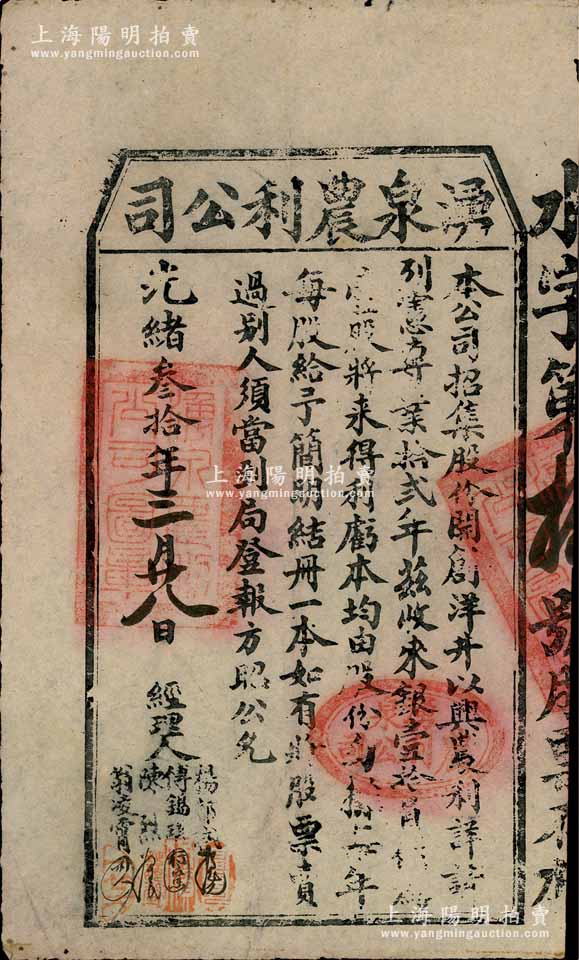 上海陽明拍賣
www.yangmingauction.com
湧泉農利公司
本公司招集股份開創洋井以興農利詳
列憲專業拾弍年茲收來銀壹拾
股將來得利虧本均由股份年
每股給予簡明結册一本如有將股票賣
過别人須當到局登報方昭公允
光緒叁拾年三月廿八日
經理人
楊
傅錫
陳
翁凌霄
水字第拾號股票
上海陽明拍賣
www.yangmingauction.com
上海陽明拍賣
www.yangmingauction.com